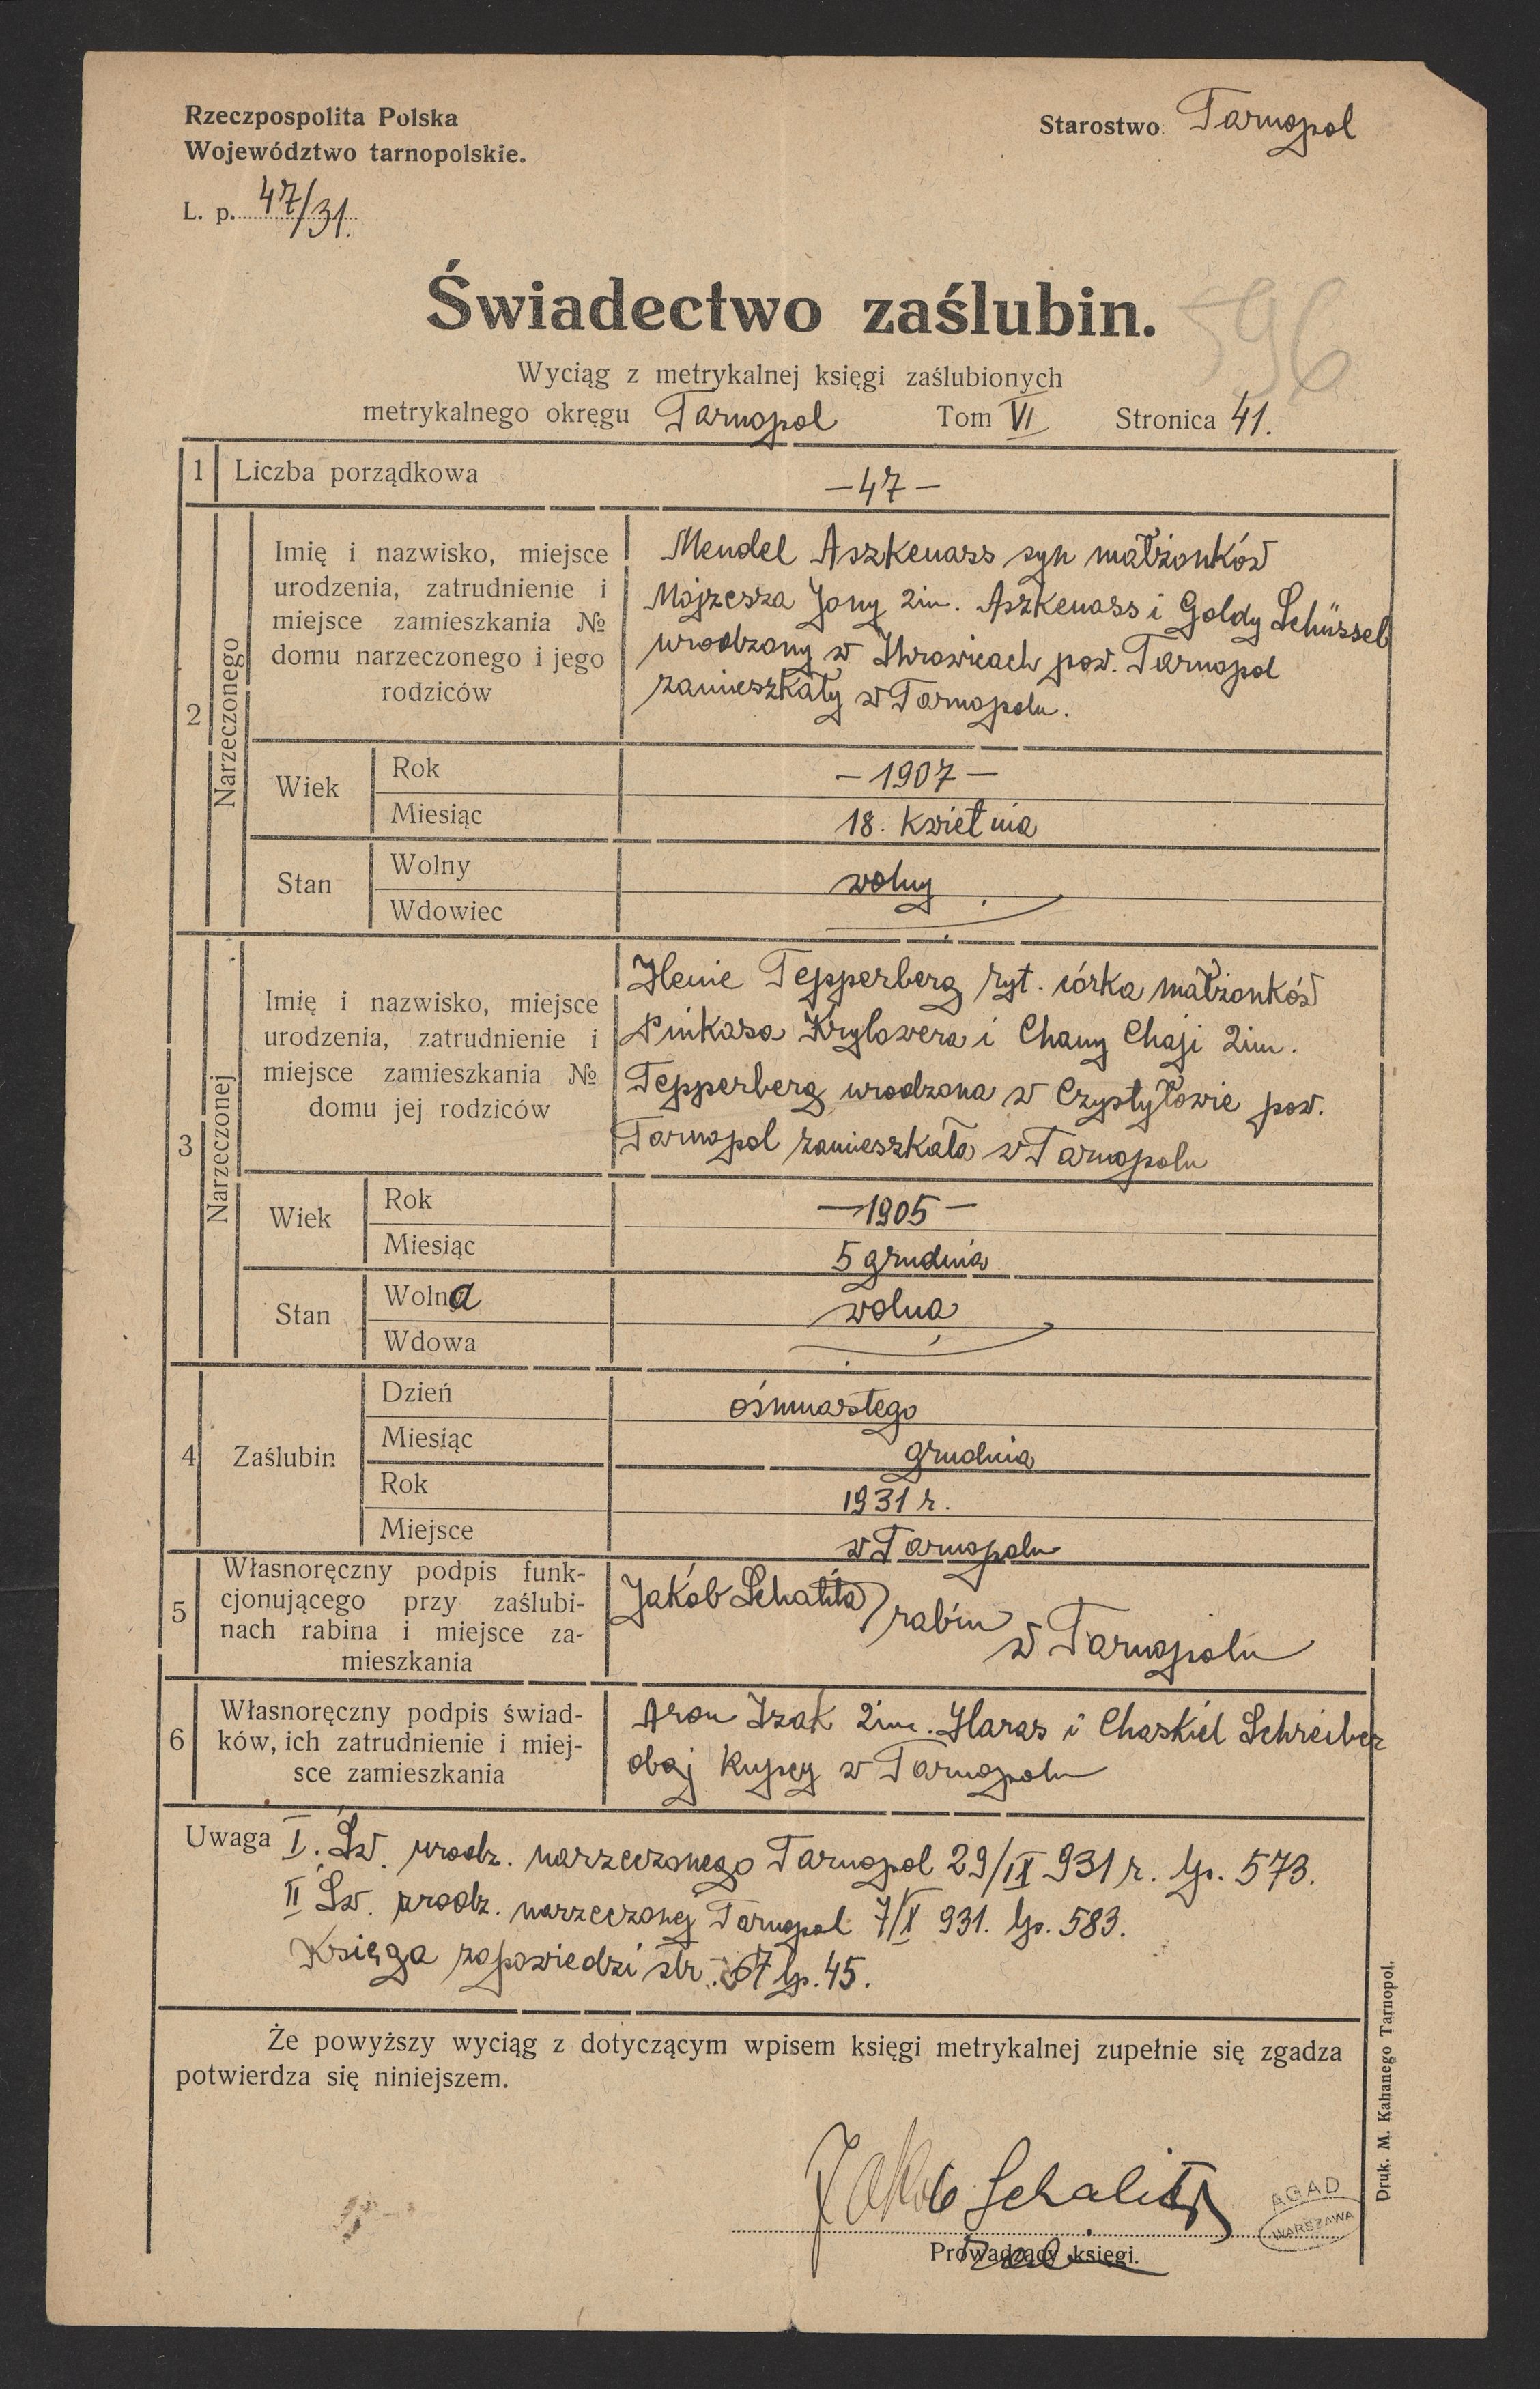 Rzeczpospolita Polska
Województwo tarnopolskie.
Starostwo Tarnopol
L. p. 47/31.
Świadectwo zaślubin.
596
Wyciąg z metrykalnej księgi zaślubionych
metrykalnego okręgu Tarnopol Tom VI Stronica 41.
1 Liczba porządkowa
—47—
2
Narzeczonego
Imię i nazwisko, miejsce
urodzenia, zatrudnienie i
miejsce zamieszkania №
domu narzeczonego i jego
rodziców
Mendel Aszkenass syn małżonków
Mojzesza Jony 2im. Aszkenass i Goldy Schüssel
urodzony w Ihrowicach pow. Tarnopol
zamieszkały w Tarnopolu.
Wiek
Rok —1907—
Miesiąc 18. kwietnia
Stan
Wolny wolny
Wdowiec
3
Narzeczonej
Imię i nazwisko, miejsce
urodzenia, zatrudnienie i
miejsce zamieszkania №
domu jej rodziców
Henie Tepperberg ryt. córka małżonków
Pinkasa Krylowera i Chany Chaji 2im.
Tepperberg urodzona w Czystyłowie pow.
Tarnopol zamieszkała w Tarnopolu
Wiek
Rok —1905—
Miesiąc 5 grudnia
Stan
Wolna wolna
Wdowa
4 Zaślubin
Dzień ośmnastego
Miesiąc grudnia
Rok 1931 r.
Miejsce w Tarnopolu
5
Własnoręczny podpis funk-
cjonującego przy zaślubi-
nach rabina i miejsce za-
mieszkania
Jakób Schalita rabin
w Tarnopolu
6
Własnoręczny podpis świad-
ków, ich zatrudnienie i miej-
sce zamieszkania
Aron Izak 2im. Haras i Chaskiel Schreiber
obaj kupcy w Tarnopolu
Uwaga I. Św. urodz. narzeczonego Tarnopol 29/IX 931 r. lp. 573.
II Św. urodz. narzeczonej Tarnopol 7/X 931. lp. 583.
Księga zapowiedzi str. 67 lp. 45.
Że powyższy wyciąg z dotyczącym wpisem księgi metrykalnej zupełnie się zgadza
potwierdza się niniejszem.
Jakob Schalita
Prowadzący księgi.
AGAD
WARSZAWA
Druk. M. Kahanego Tarnopol.